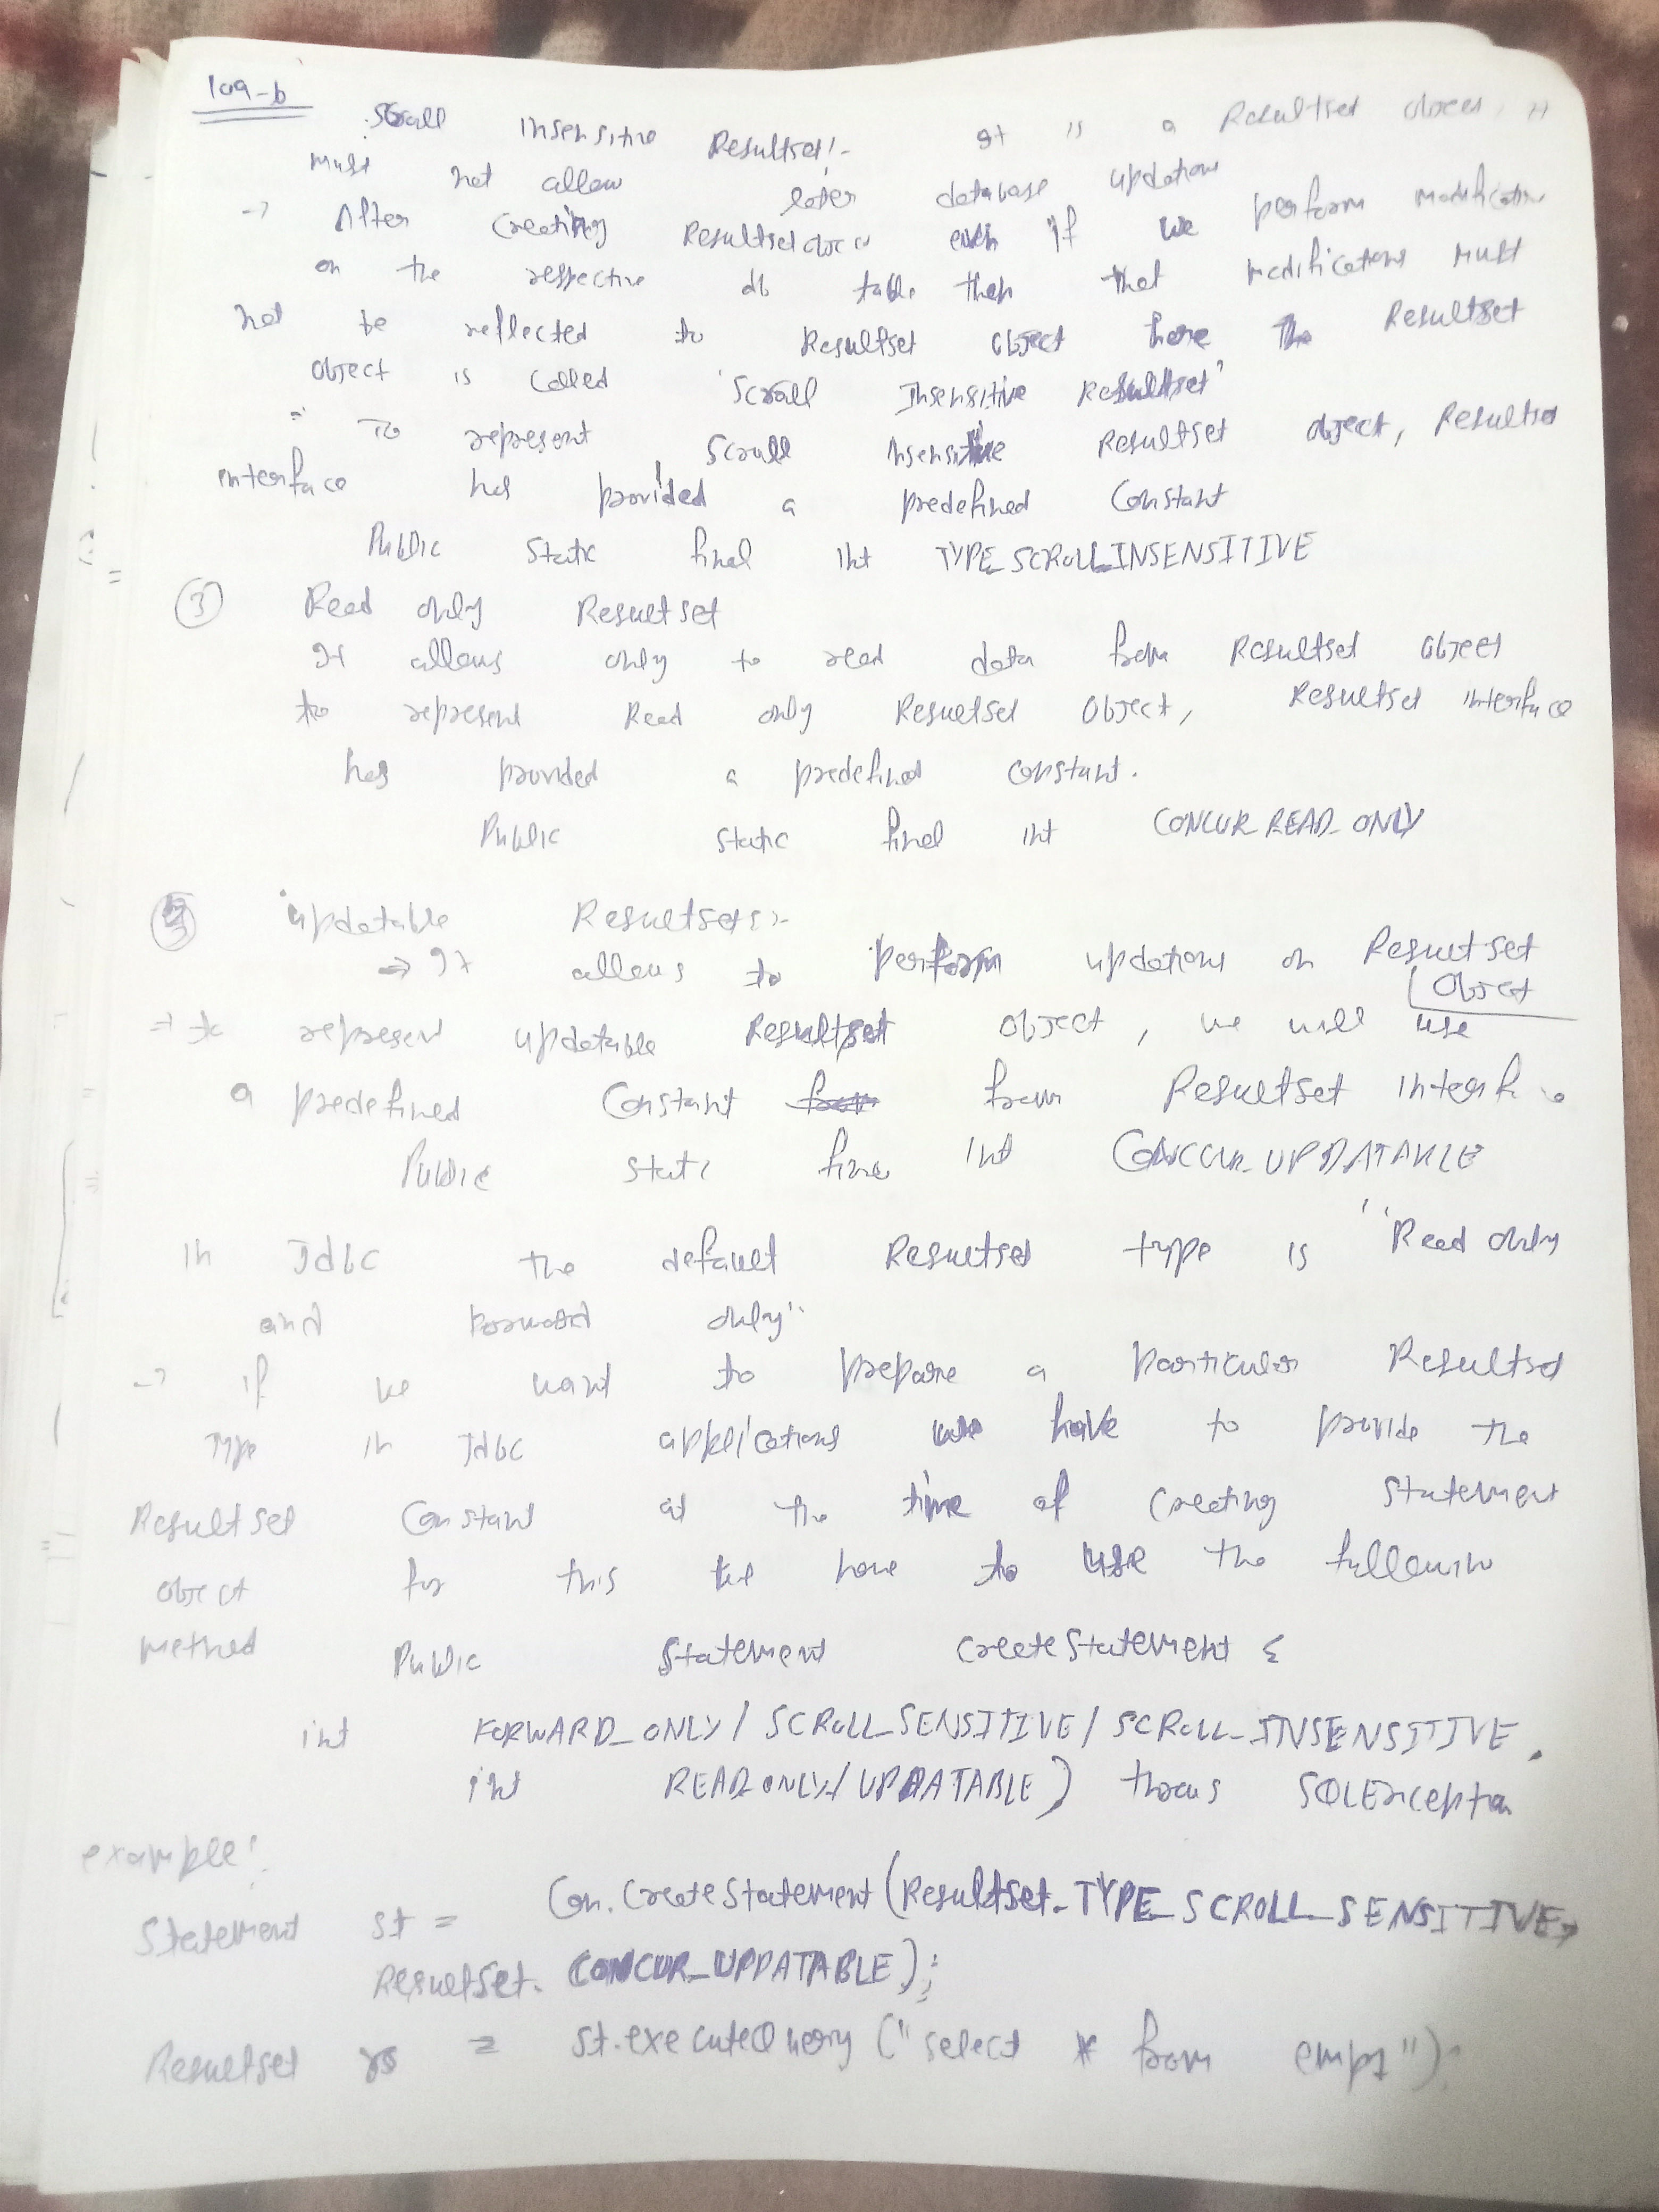 109-b
Scroll Insensitive Resultset:- It is a Resultset object, it
must not allow later database updations
→ After creating Resultset object even if we perform modification
on the respective db table then that modifications must
not be reflected to Resultset object here the Resultset
object is called 'Scroll Insensitive Resultset'
= To represent Scroll Insensitive Resultset object, Resultset
interface has provided a predefined Constant
Public Static final int TYPE_SCROLL_INSENSITIVE
③ Read only Resultset
It allows only to read data from Resultset object
to represent Read only Resultset Object, Resultset interface
has provided a predefined constant.
Public static final int CONCUR_READ_ONLY
updatable Resultsets:-
→ It allows to perform updations on Resultset
Object
→ to represent updatable Resultset object, we will use
a predefined Constant from Resultset Interface
Public static final int CONCUR_UPDATABLE
in Jdbc the default Resultset type is "Read only
and forward only"
→ if we want to prepare a particular Resultset
Type in Jdbc applications we have to provide the
Resultset Constant at the time of Creating Statement
object for this we have to use the following
method Public Statement CreateStatement (
int FORWARD_ONLY / SCROLL_SENSITIVE / SCROLL_INSENSITIVE,
int READ_ONLY / UPDATABLE) throws SQLException
example:
Statement st = Con.CreateStatement (Resultset.TYPE_SCROLL_SENSITIVE,
Resultset.CONCUR_UPDATABLE);
Resultset rs = st.executeQuery ("select * from emp1");